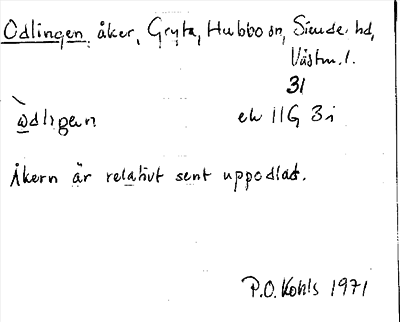 Odlingen, åker, Gryta, Hubbo sn, Siende hd,
Västm. l.
31
ὼdlιgεn
ek 11G 3i
Åkern är relativt sent uppodlad.
P.O. Kohls 1971